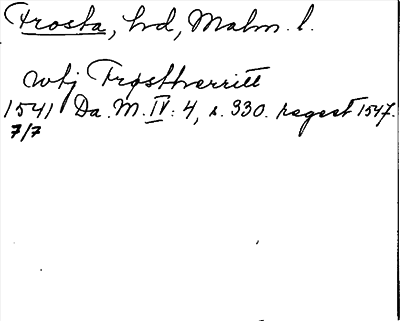 Frosta, hd, Malm. l.
wtj Frostherritt
1541 Da. M. IV: 4, s. 330. regest 1547.
7/7